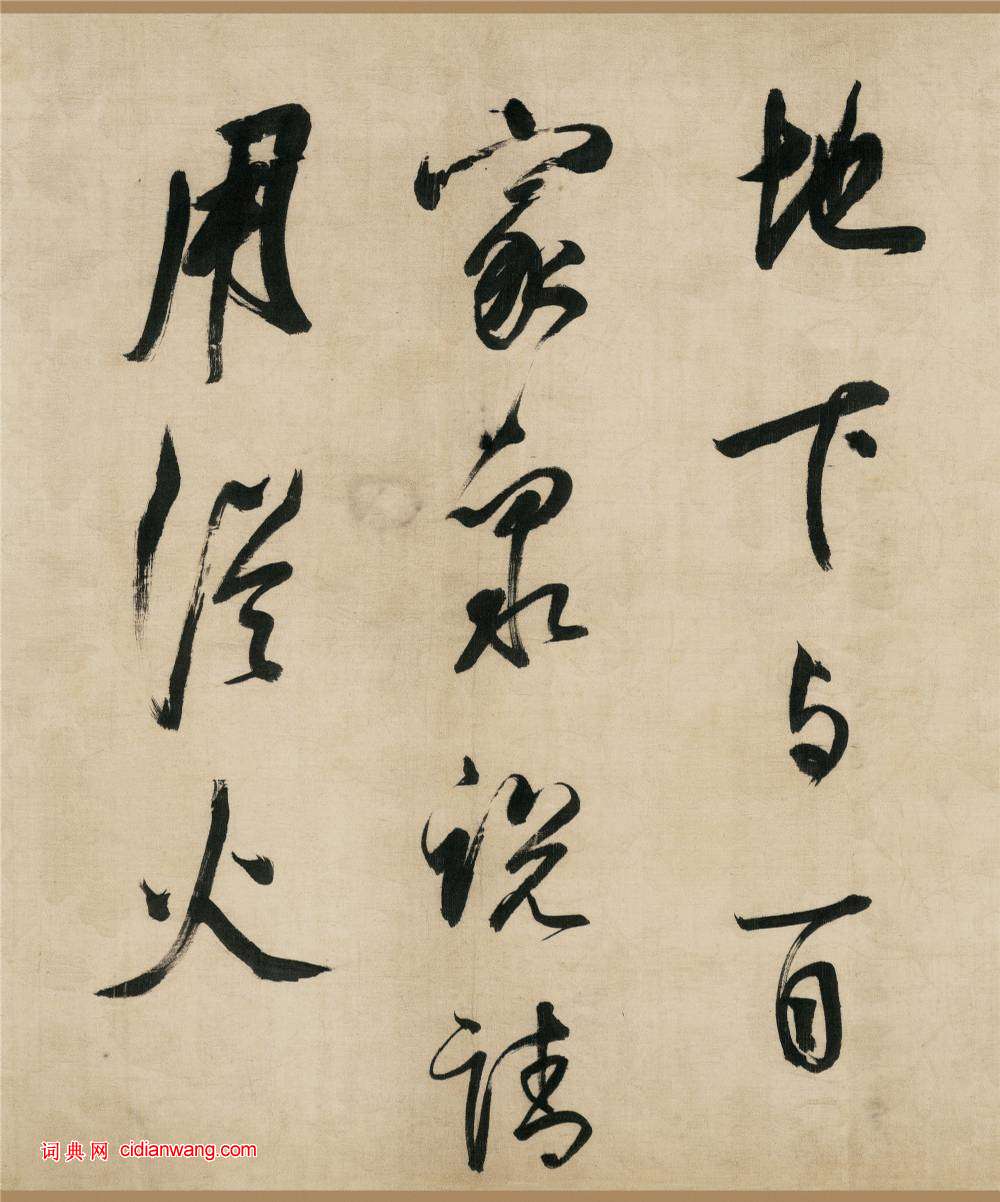 地下与百
家衆說請
用從火
词典网 cidianwang.com